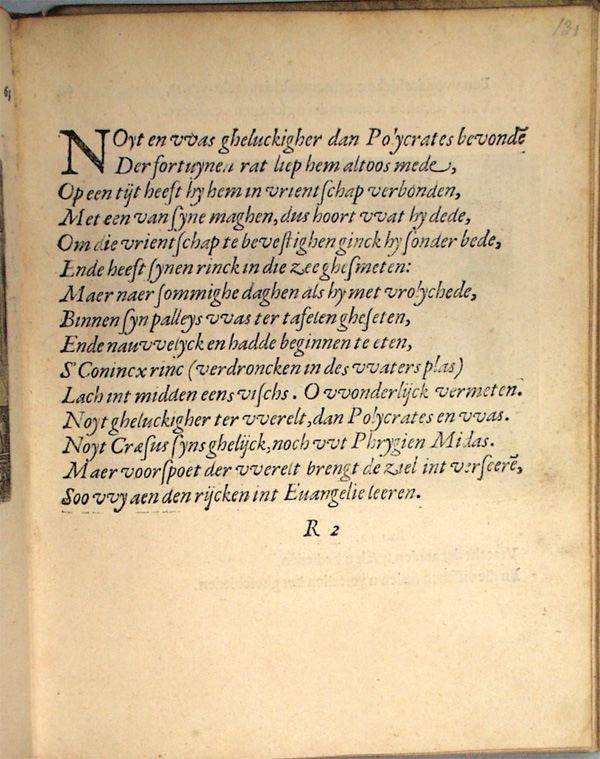 131
NOyt en vvas gheluckigher dan Polycrates bevondē
Der fortuynen rat liep hem altoos mede,
Op een tijt heeft hy hem in vrientſchap verbonden,
Met een van ſyne maghen, dus hoort vvat hy dede,
Om die vrientſchap te beveſtighen ginck hy ſonder bede,
Ende heeft ſynen rinck in die zee gheſmeten:
Maer naer ſommighe daghen als hy met vrolychede,
Binnen ſyn palleys vvas ter tafelen gheſeten,
Ende nauvvelyck en hadde beginnen te eten,
S'Conincx rinc (verdroncken in des vvaters plas)
Lach int midden eens viſchs. O vvonderlijck vermeten.
Noyt gheluckigher ter vverelt, dan Polycrates en vvas.
Noyt Cræſus ſyns ghelijck, noch vvt Phrygien Midas.
Maer voorſpoet der vverelt brengt de ziel int verſeerē,
Soo vvy aen den rijcken int Euangelie leeren.
R 2